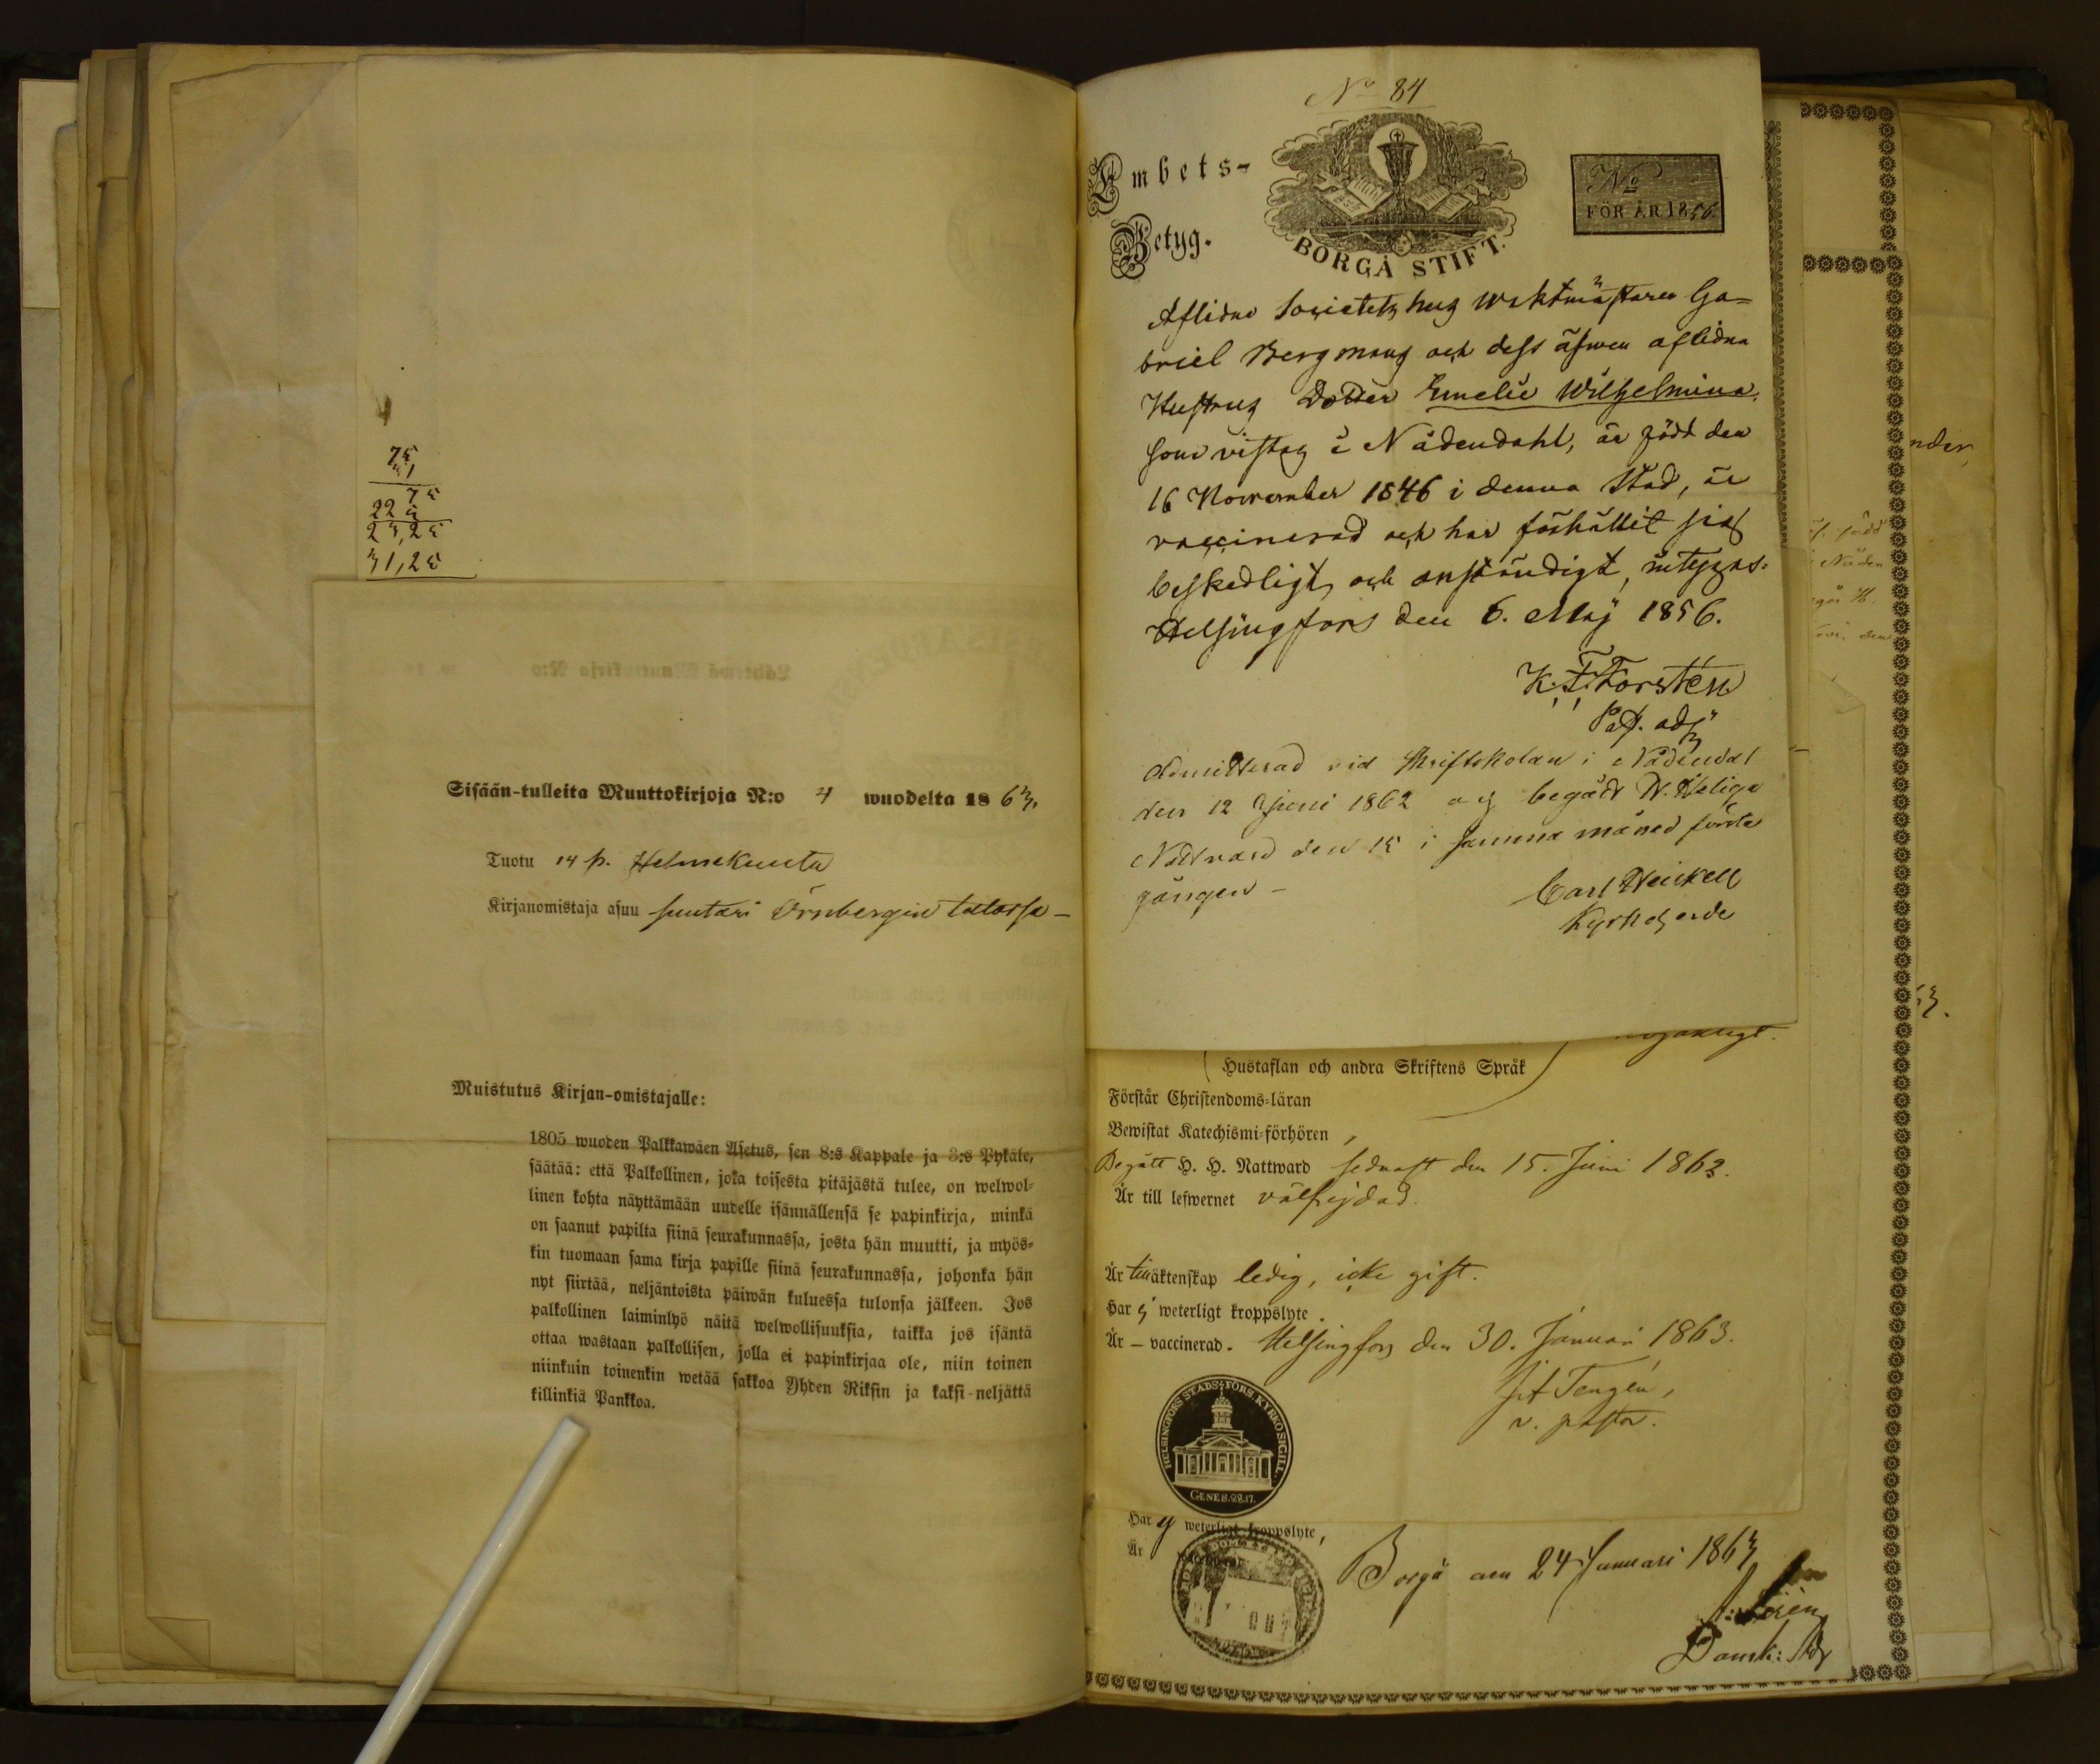 75
3,1
75
22 5
23,25
31,25
Sisään-tulleita Muuttokirjoja N:o 4 wuodelta 18 63.
Tuotu 14 p. Helmekuuta
Kirjanomistaja asuu suutari Örnbergin talossa –
Muistutus Kirjan-omistajalle:
1805 wuoden Palkkawäen Asetus, sen 8:s Kappale ja 3:s Pykäle,
säätää: että Palkollinen, joka toisesta pitäjästä tulee, on welwol-
linen kohta näyttämään uudelle isännällensä se papinkirja, minkä
on saanut papilta siinä seurakunnassa, josta hän muutti, ja myös-
kin tuomaan sama kirja papille siinä seurakunnassa, johonka hän
nyt siirtää, neljäntoista päiwän kuluessa tulonsa jälkeen. Jos
palkollinen laiminlyö näitä welwollisuuksia, taikka jos isäntä
ottaa wastaan palkollisen, jolla ei papinkirjaa ole, niin toinen
niinkuin toinenkin wetää sakkoa Yhden Riksin ja kaksi-neljättä
killinkiä Pankkoa.
No 84
Embets-
Betyg.
BORGÅ STIFT.
No
FÖR ÅR 1856
Aflidne Societetshus Waktmästaren Ga-
briel Bergmans och dess äfwen aflidna
Hustrus Dotter Emelie Wilhelmina,
som vistas i Nådendahl, är född den
16 November 1846 i denna Stad, är
vaccinerad och har förhållit sig
beskedligt och anständigt, intygas.
Helsingfors den 6. Maj 1856.
K. F. Forstén
Past. adj.
Admitterad vid Skriftskolan i Nådendal
den 12 Juni 1862 och begådt H. Heliga
Nattvard den 15 i samma månad första
gången –
Carl Heickell
Kyrkoherde
Hustaflan och andra Skriftens Språk
Förstår Christendoms-läran
Bewistat Katechismi-förhören
Begått H. H. Nattward sednast den 15. Juni 1862.
Är till lefwernet välfrejdad.
Är till äktenskap ledig, icke gift.
Har ej weterligt kroppslyte.
Är – vaccinerad. Helsingfors den 30. Januari 1863.
Tengén,
v. pastor.
HELSINGFORS STADS FÖRS. KYRKOSIGILL.
GENES. 28.17.
Har ej weterligt kroppslyte,
Är
Borgå den 24 Januari 1863
nder,
född
Nåden
den
63.